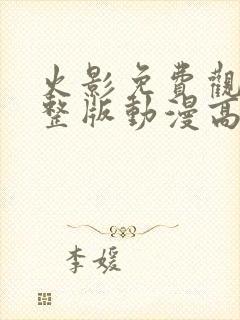 火影免費觀
整版動漫高
李媛